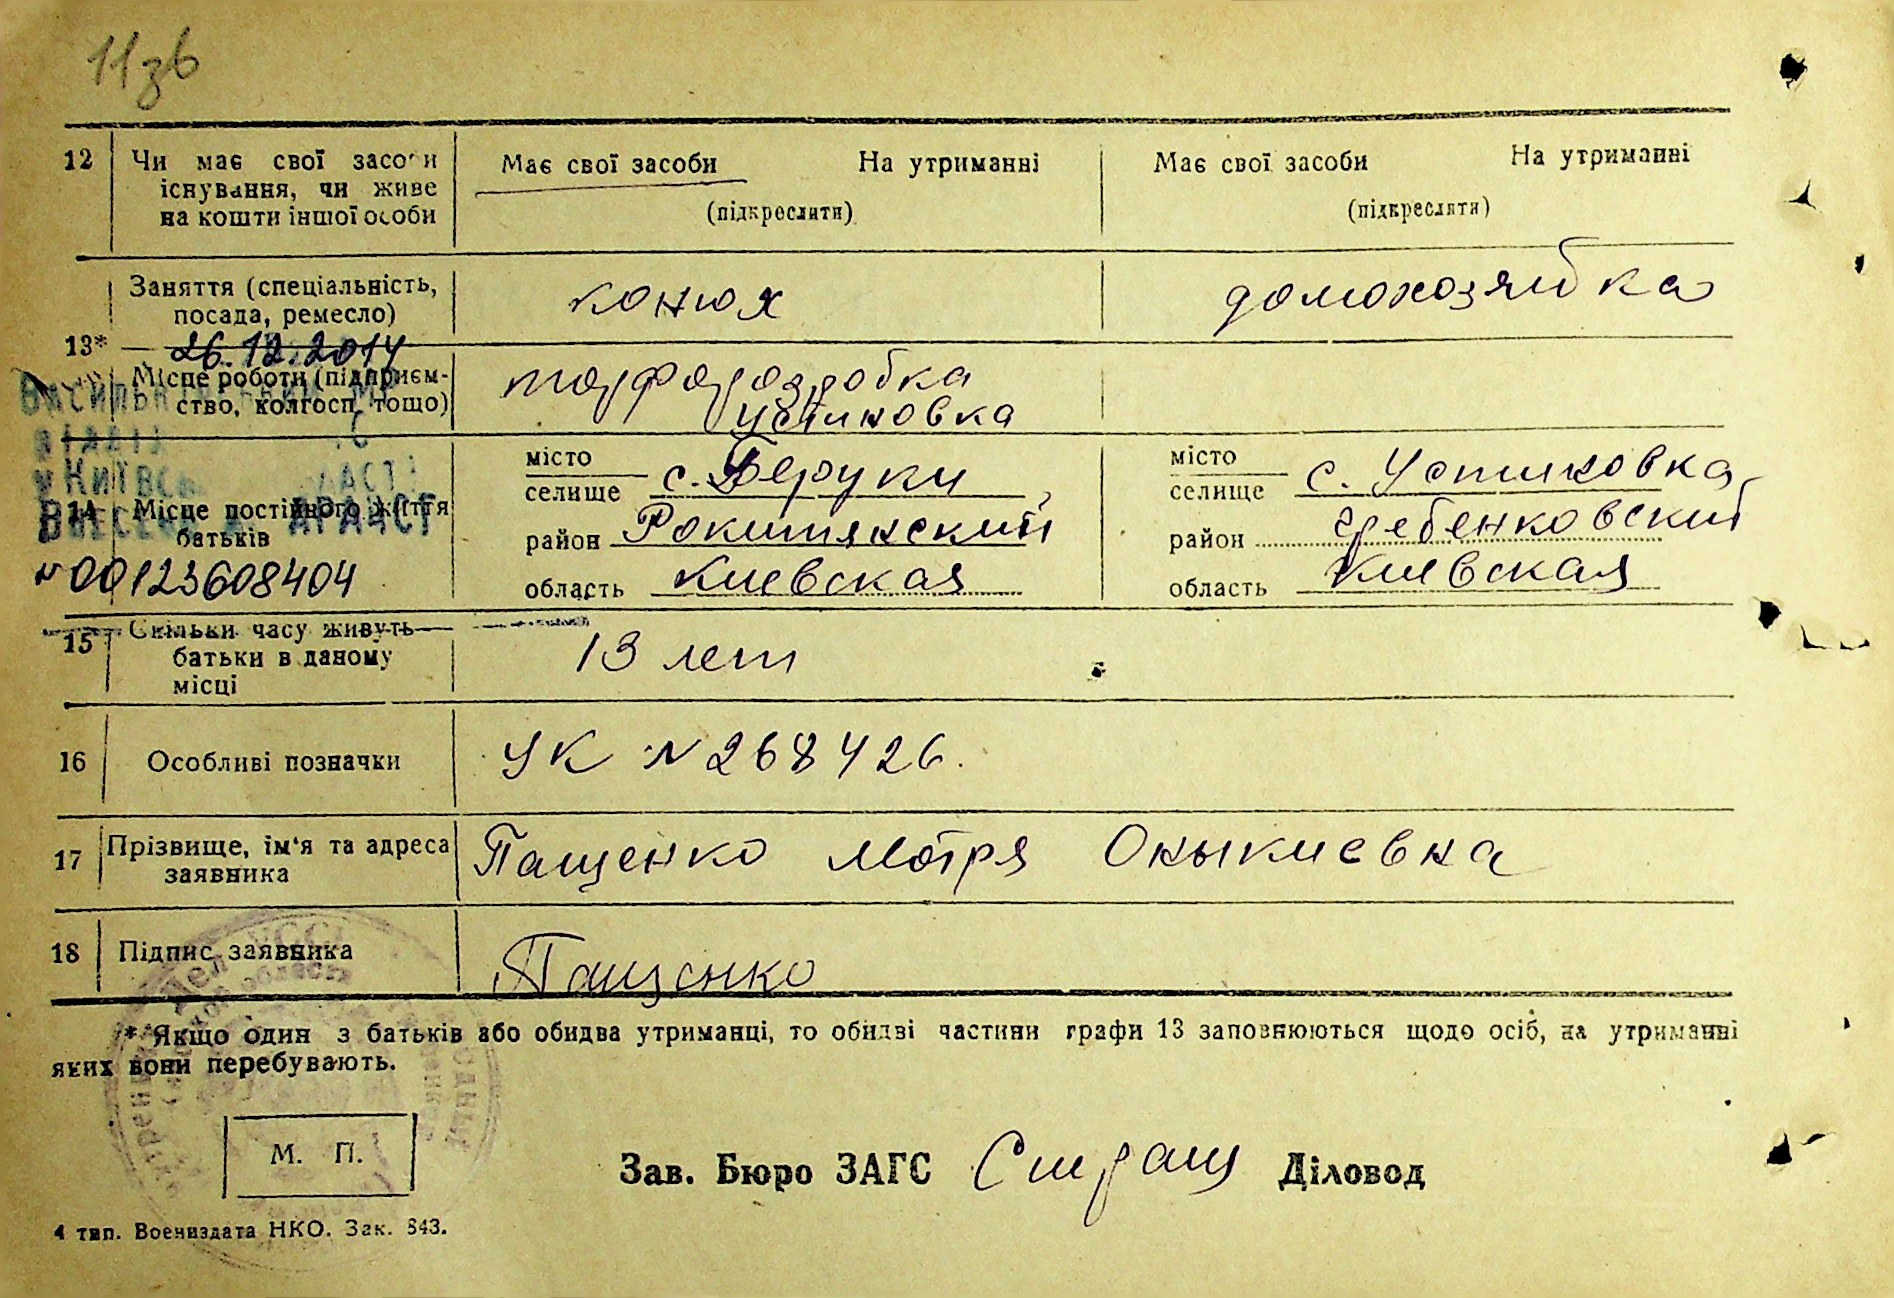 11зв
12 Чи має свої засоби Має свої засоби На утриманні Має свої засоби На утриманні
існування, чи живе
на кошти іншої особи (підкреслити) (підкреслити)
Заняття (спеціальність, конюх домохозяйка
посада, ремесло)
13*
26.12.2014
Місце роботи (підприєм- торфоразробка
ство, колгосп, тощо) Устиновка
місто місто
селище с. Беруки, селище с. Устиновка
14 Місце постійного життя
батьків район Рокитянский район Гребенковский
N 00123608404 область Киевская область Киевская
15 Скільки часу живуть
батьки в даному 13 лет
місці
16 Особливі позначки УК N 268426.
17 Прізвище, ім'я та адреса Пащенко Мотря Оныкиевна
заявника
18 Підпис заявника Пащенко
* Якщо один з батьків або обидва утриманці, то обидві частини графи 13 заповнюються щодо осіб, на утриманні
яких вони перебувають.
М. П.
Зав. Бюро ЗАГС Діловод
4 тип. Воениздата НКО. Зак. 843.